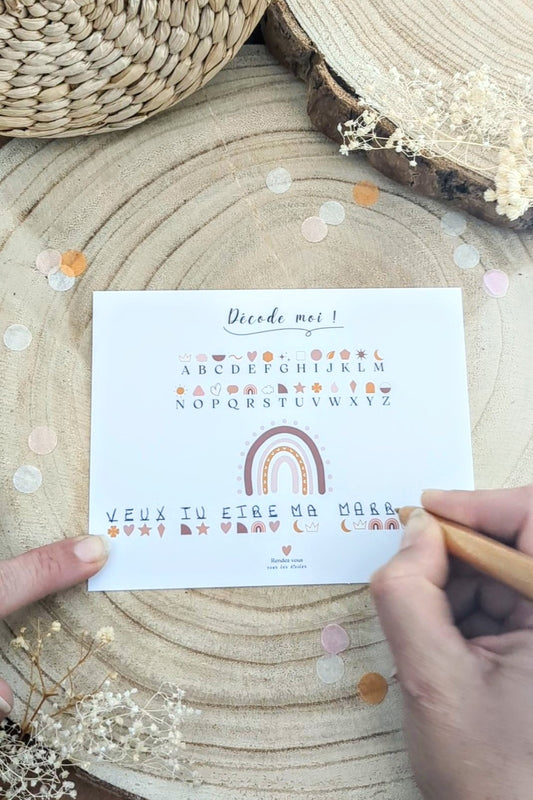 Décode moi !
A B C D E F G H I J K L M
N O P Q R S T U V W X Y Z
VEUX TU ETRE MA MARR
Rendez-vous
sous les étoiles